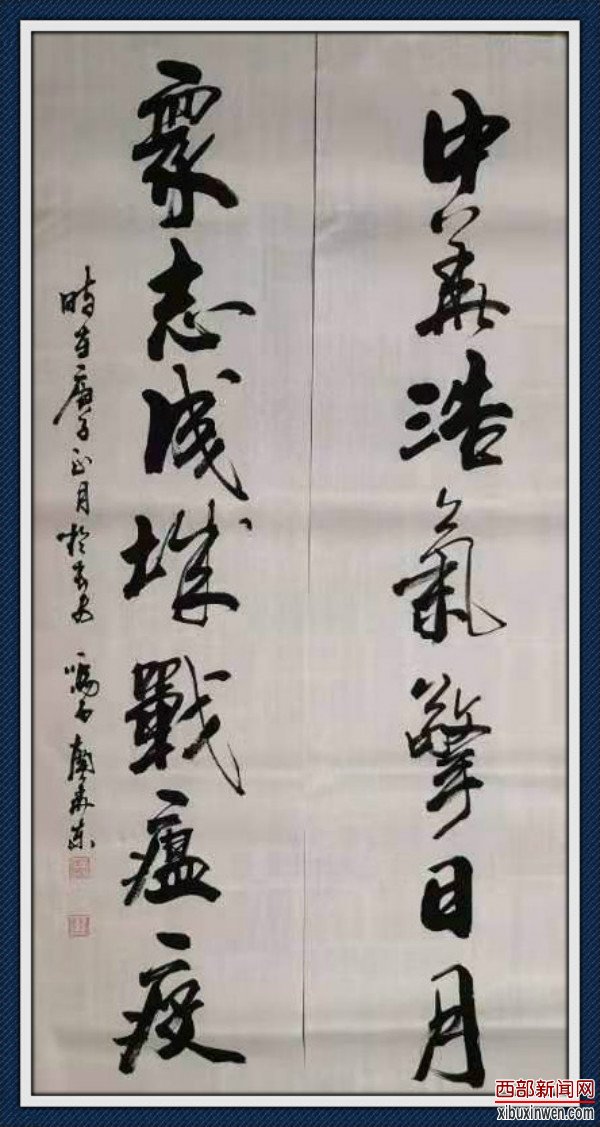 中華浩氣擎日月
眾志成城戰瘟疫
時在庚子正月於
西部新闻网
xibuxinwen.com